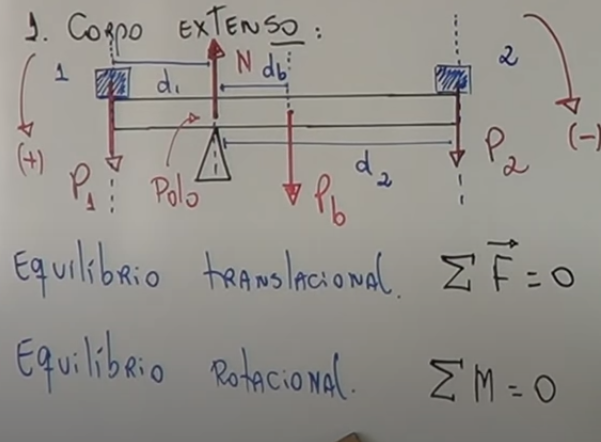 1. CORPO EXTENSO:
1 d₁ N db 2
(+) (-)
P₁ Polo Pb d₂ P₂
Equilíbrio translacional. Σ F⃗ = 0
Equilíbrio Rotacional. Σ M = 0